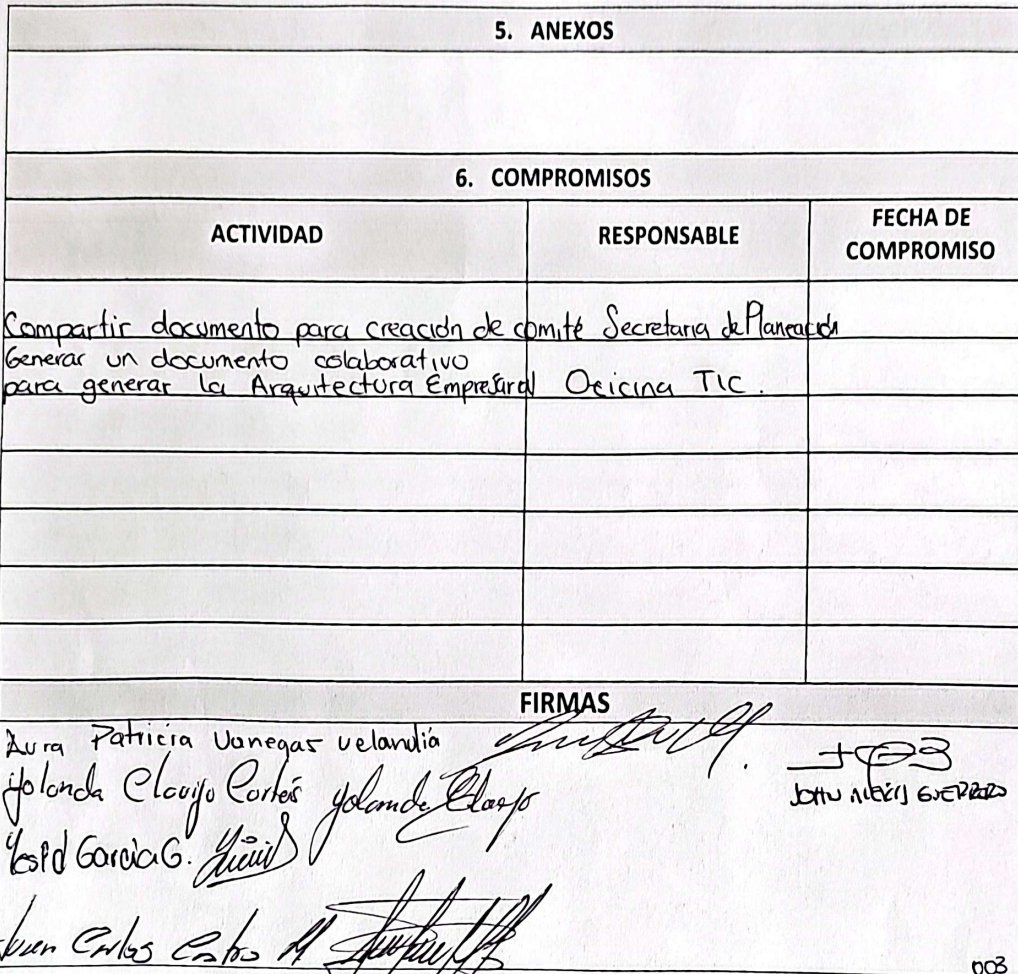 5. ANEXOS
6. COMPROMISOS
ACTIVIDAD RESPONSABLE FECHA DE COMPROMISO
Compartir documento para creación de comité Secretaria de Planeación
Generar un documento colaborativo
para generar la Arquitectura Empresarial Oficina TIC.
FIRMAS
Aura Patricia Vanegas velandia
Yolanda Clavijo Cortés Yolanda Clavijo
JOHN ALEXIS GUERRERO
Yesid Garcia G. Yesid
Juan Carlos Castro M
003